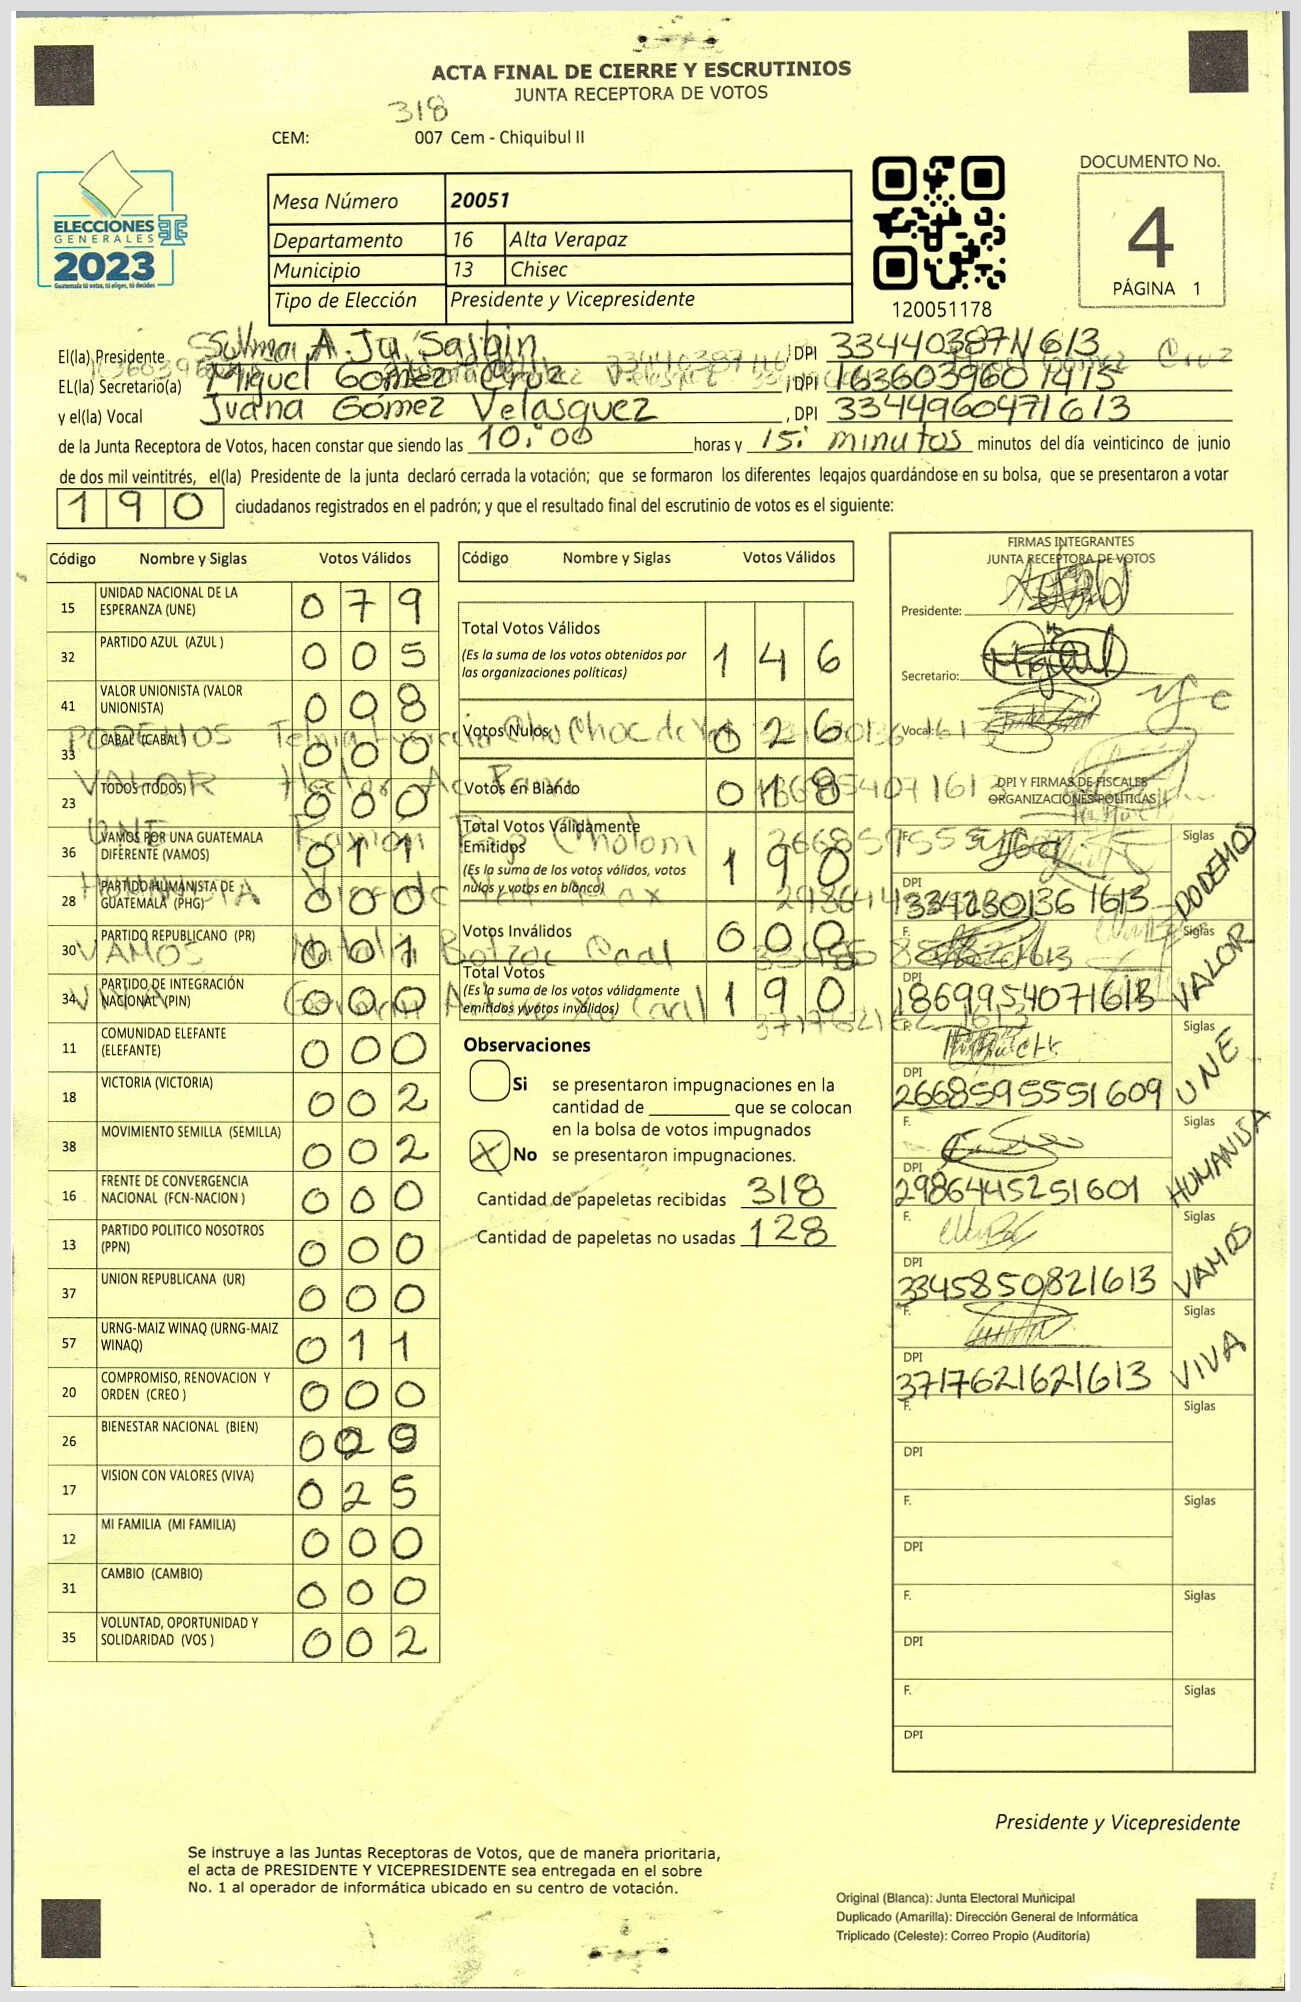 ACTA FINAL DE CIERRE Y ESCRUTINIOS
JUNTA RECEPTORA DE VOTOS
318
CEM: 007 Cem - Chiquibul II
ELECCIONES
GENERALES
2023
Guatemala tú votas, tú eliges, tú decides
Mesa Número 20051
Departamento 16 Alta Verapaz
Municipio 13 Chisec
Tipo de Elección Presidente y Vicepresidente
120051178
DOCUMENTO No.
4
PÁGINA 1
El(la) Presidente Sulma A. Ju Sasbin , DPI
EL(la) Secretario(a) Miguel Gómez Cruz , DPI 1636039601415
y el(la) Vocal Juana Gómez Velasquez , DPI 3344960471613
de la Junta Receptora de Votos, hacen constar que siendo las 10:00 horas y 15: minutos minutos del día veinticinco de junio
de dos mil veintitrés, el(la) Presidente de la junta declaró cerrada la votación; que se formaron los diferentes legajos guardándose en su bolsa, que se presentaron a votar
190 ciudadanos registrados en el padrón; y que el resultado final del escrutinio de votos es el siguiente:
Código Nombre y Siglas Votos Válidos
15 UNIDAD NACIONAL DE LA ESPERANZA (UNE) 079
32 PARTIDO AZUL (AZUL ) 005
41 VALOR UNIONISTA (VALOR UNIONISTA) 008
33 CABAL (CABAL ) 000
23 TODOS (TODOS) 000
36 VAMOS POR UNA GUATEMALA DIFERENTE (VAMOS) 011
28 PARTIDO HUMANISTA DE GUATEMALA (PHG) 000
30 PARTIDO REPUBLICANO (PR) 001
34 PARTIDO DE INTEGRACIÓN NACIONAL (PIN) 000
11 COMUNIDAD ELEFANTE (ELEFANTE) 000
18 VICTORIA (VICTORIA) 002
38 MOVIMIENTO SEMILLA (SEMILLA) 002
16 FRENTE DE CONVERGENCIA NACIONAL (FCN-NACION ) 000
13 PARTIDO POLITICO NOSOTROS (PPN) 000
37 UNION REPUBLICANA (UR) 000
57 URNG-MAIZ WINAQ (URNG-MAIZ WINAQ) 011
20 COMPROMISO, RENOVACION Y ORDEN (CREO ) 000
26 BIENESTAR NACIONAL (BIEN)
17 VISION CON VALORES (VIVA) 025
12 MI FAMILIA (MI FAMILIA) 000
31 CAMBIO (CAMBIO) 000
35 VOLUNTAD, OPORTUNIDAD Y SOLIDARIDAD (VOS ) 002
Código Nombre y Siglas Votos Válidos
Total Votos Válidos 146
(Es la suma de los votos obtenidos por
las organizaciones políticas)
Votos Nulos 026
Votos en Blanco 018
Total Votos Válidamente
Emitidos 190
(Es la suma de los votos válidos, votos
nulos y votos en blanco)
Votos Inválidos 000
Total Votos 190
(Es la suma de los votos válidamente
emitidos y votos inválidos)
Observaciones
Si se presentaron impugnaciones en la
cantidad de ________ que se colocan
en la bolsa de votos impugnados
X No se presentaron impugnaciones.
Cantidad de papeletas recibidas 318
Cantidad de papeletas no usadas 128
FIRMAS INTEGRANTES
JUNTA RECEPTORA DE VOTOS
Presidente:
Secretario: Miguel
Vocal:
DPI Y FIRMAS DE FISCALES
ORGANIZACIONES POLÍTICAS
F. Siglas PODEMOS
DPI
F. Siglas VALOR
DPI 1869954071613
F. Siglas UNE
DPI 2668595551609
F. Siglas HUMANISA
DPI 2986445251601
F. Siglas VAMOS
DPI 3345850821613
F. Siglas VIVA
DPI 3717621621613
F. Siglas
DPI
F. Siglas
DPI
F. Siglas
DPI
F. Siglas
DPI
Presidente y Vicepresidente
Se instruye a las Juntas Receptoras de Votos, que de manera prioritaria,
el acta de PRESIDENTE Y VICEPRESIDENTE sea entregada en el sobre
No. 1 al operador de informática ubicado en su centro de votación.
Original (Blanca): Junta Electoral Municipal
Duplicado (Amarilla): Dirección General de Informática
Triplicado (Celeste): Correo Propio (Auditoría)